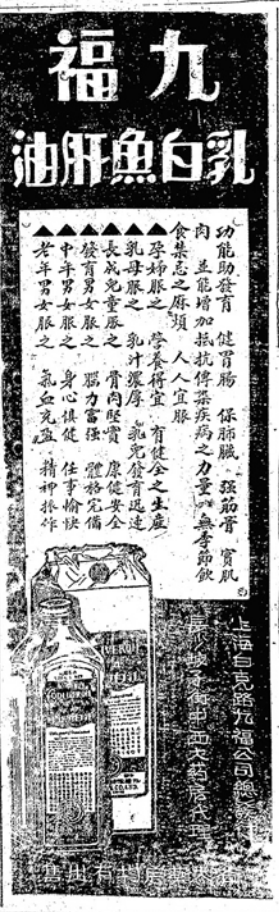 九福
乳白魚肝油
功能助發育 健胃腸 保肺臟 强筋骨 實肌
肉 並能增加抵抗傳染疾病之力量 無季節飲
食禁忌之麻煩 人人宜服
▲孕婦服之 營養得宜 有健全之生產
▲乳母服之 乳汁濃厚 乳兒發育迅速
▲長成兒童服之 骨肉堅實 康健安全
▲發育男女服之 腦力富强 體格完備
▲中年男女服之 身心俱健 任事愉快
▲老年男女服之 氣血充盈 精神振作
上海白克路九福公司總發行
中西大药房代理
大藥房均有出售